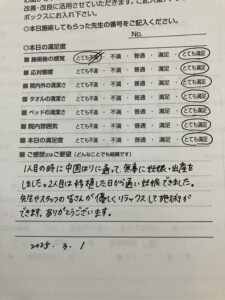 改善・改良に活用させていただきます。ご記入後は
ボックスにお入れください。
◎本日施術してもらった先生の番号をご記入ください。
No.
◎本日の満足度
■ 施術後の感覚 とても不満 ・ 不満 ・ 普通 ・ 満足 ・ とても満足
■ 応対態度 とても不満 ・ 不満 ・ 普通 ・ 満足 ・ とても満足
■ 院内外の清潔さ とても不満 ・ 不満 ・ 普通 ・ 満足 ・ とても満足
■ タオルの清潔さ とても不満 ・ 不満 ・ 普通 ・ 満足 ・ とても満足
■ ベッドの清潔さ とても不満 ・ 不満 ・ 普通 ・ 満足 ・ とても満足
■ 院内雰囲気 とても不満 ・ 不満 ・ 普通 ・ 満足 ・ とても満足
■ 本日の満足度 とても不満 ・ 不満 ・ 普通 ・ 満足 ・ とても満足
■ ご感想又はご要望 (どんなことでも結構です)
1人目の時に中国はりに通って、無事に妊娠・出産を
しました。2人目は移植した日から通い妊娠できました。
先生やスタッフの皆さんが優しくリラックスして施術が
できます。ありがとうございます。
2025. 3. 1